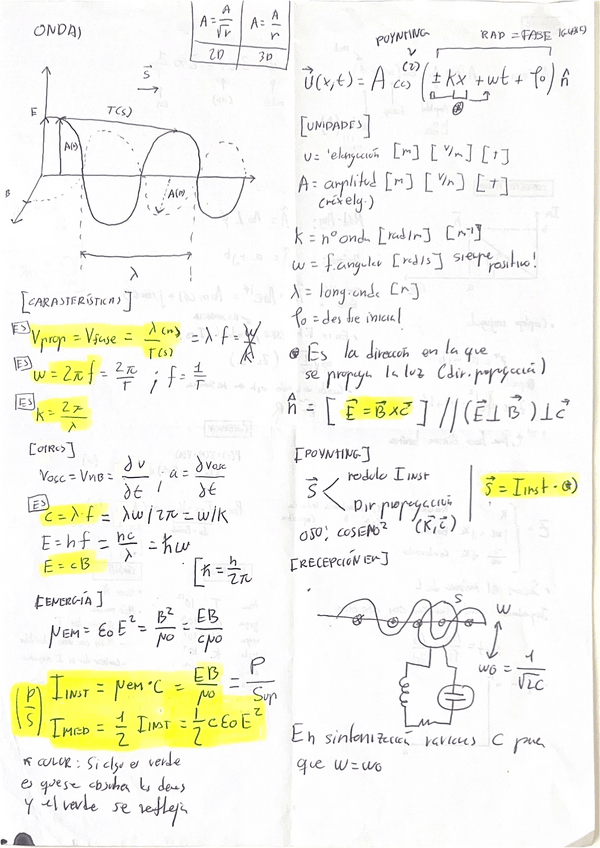 ONDAS
A = A/√r
A = A/r
2D
3D
S⃗
E
T(s)
A(0)
B
A(0)
λ
[CARASTERÍSTICAS]
ES Vprop = Vfase = λ(m)/T(s) = λ·f = w/k
ES w = 2πf = 2π/T ; f = 1/T
ES k = 2π/λ
[OTROS]
Vosc = VnB = ∂u/∂t , a = ∂Vosc/∂t
ES c = λ·f = λw/2π = w/k
E = hf = hc/λ = ħw
E = cB
[ħ = h/2π
[ENERGÍA]
μEM = ε0E² = B²/μ0 = EB/cμ0
(P/S) IINST = μEM·C = EB/μ0 = P/Sup
IMED = 1/2 IINST = 1/2 cε0E²
* COLOR: Si algo es verde
es que se absorben los demás
y el verde se refleja
POYNTING
RAD = FASE
(2)
U⃗(x,t) = A cos (±kx + wt + φ0) n̂
[UNIDADES]
u = elongación [m] [V/m] [T]
A = amplitud [m] [V/m] [T]
(máx elg.)
k = nº onda [rad/m] [m⁻¹]
w = f. angular [rad/s] siempre positivo!
λ = long. onda [m]
φ0 = desfase inicial
⊛ Es la dirección en la que
se propaga la luz (dir. propagación)
n̂ = [E⃗ = B⃗ x c⃗] // (E⃗ ⊥ B⃗) ⊥ c⃗
[POYNTING]
S⃗ < modulo IINST
Dir propagación
(K⃗, c⃗)
S⃗ = IINST · ⊛)
OJO! COSENO²
[RECEPCIÓN EM]
S
w
w0 = 1/√LC
En sintonización variamos C para
que w = w0